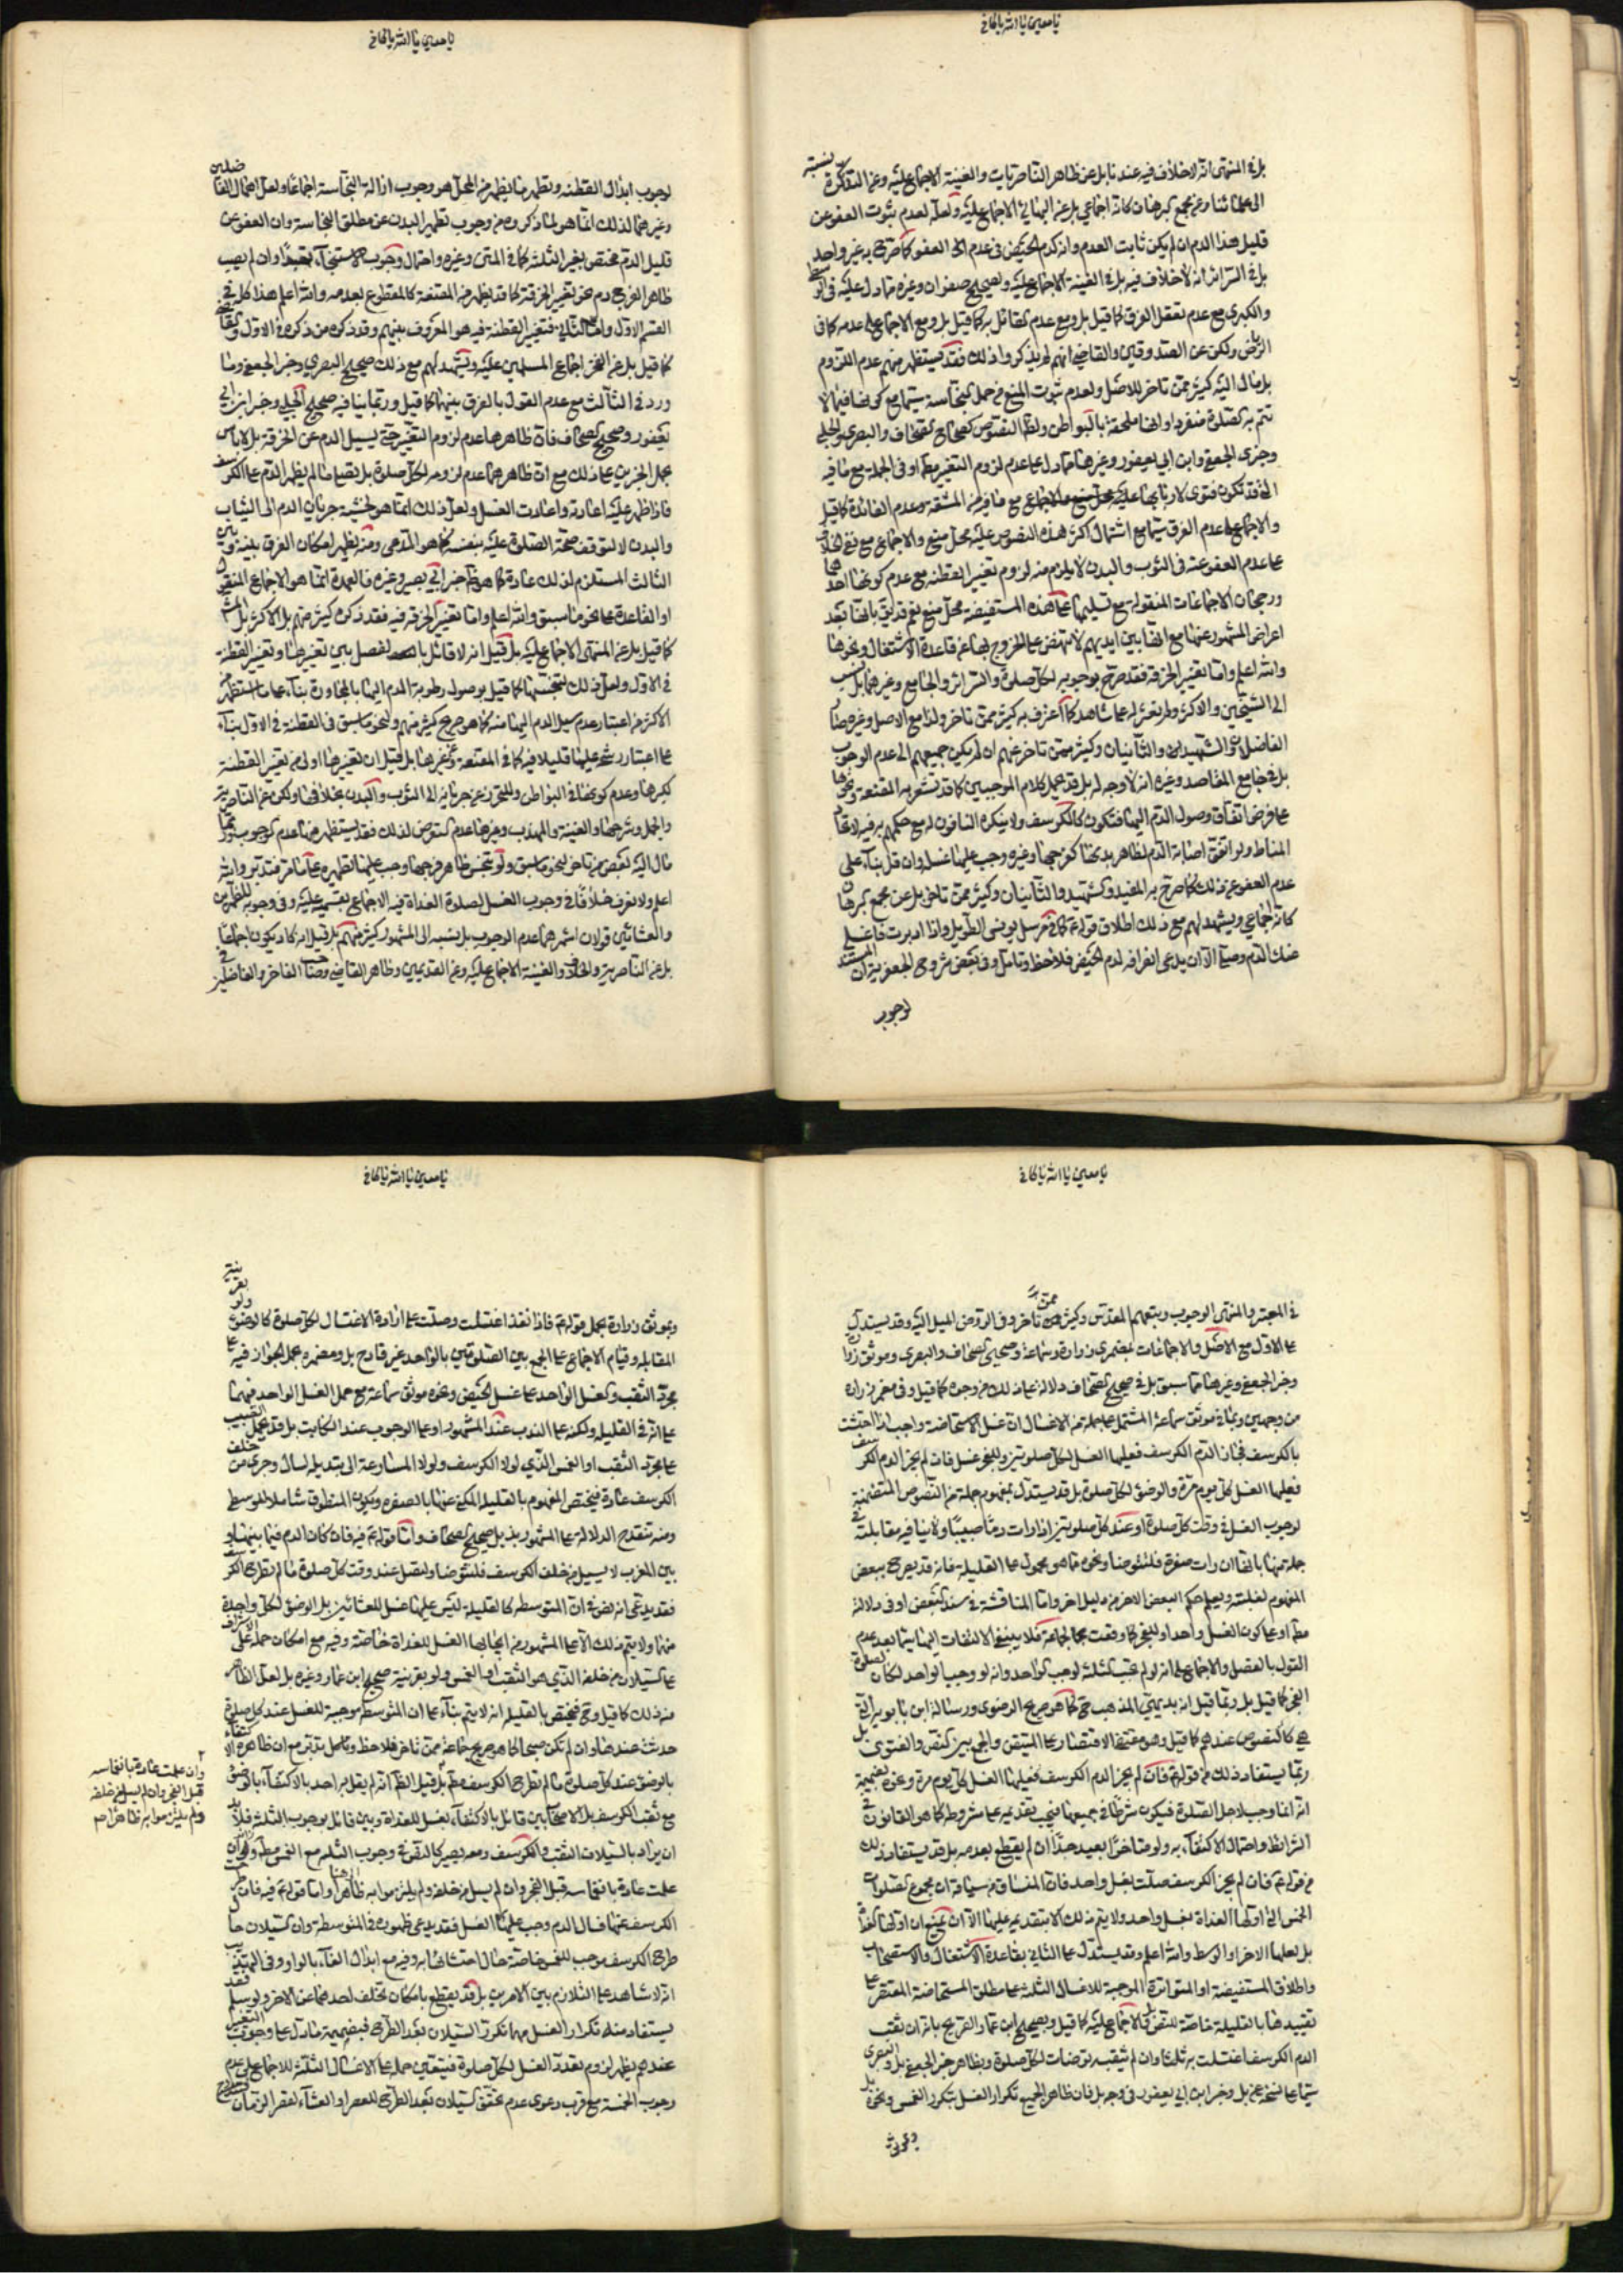 يا معين يا الله يا كافي
بل في المنتهى انه لا خلاف فيه عندنا بل عن ظاهر الناصريات والغنية الاجماع عليه وعن التذكرة نسبته
الى علمائنا وعن مجمع البرهان كانه اجماعي بل عن الاجماع عليه ولعله لعدم ثبوت العفو عن
قليل هذا الدم ان لم يكن ثابت العدم وانه كدم الحيض في عدم العفو كما صرح به غير واحد
بل في السرائر انه لا خلاف فيه بل في الغنية الاجماع عليه ولصحيح صفوان وغيره مما دل عليه في
والكبرى مع عدم تعقل الفرق كما قيل بل ومع عدم القائل به كما قيل بل ومع الاجماع على عدمه كما في
الرياض ولكن عن الصدوقين والقاضي انهم لم يذكروا ذلك فقد يستظهر منهم عدم اللزوم
بل مال اليه كثير ممن تاخر للاصل ولعدم ثبوت المنع من حمل النجاسة سيما مع كونها فيما لا
تتم به الصلوة منفردا وانها ملحقة بالبواطن ولظاهر النصوص كصحاح الصحاف والبصري والحلبي
وخبري الجعفي وابن ابي يعفور وغيرها مما دل على عدم لزوم التغيير مطلقا او في الجملة مع ما فيه
والاجماع على عدم الفرق سيما مع اشتمال اكثر هذه النصوص عليه محل منع والاجماع مع نفي الخلاف
على عدم العفو عنه في الثوب والبدن لا يلزم منه لزوم تغيير القطنة مع عدم كونها احدهما
ورجحان الاجماعات المنقولة مع تسليمها على هذه المستفيضة محل منع
اعراض المشهور عنها مع انها بين ايديهم لا تنهض على الخروج بها عن قاعدة الاشتغال ونحوها
والله اعلم واما تغيير الخرقة فقد صرح بوجوبه لكل صلوة في السرائر والجامع وغيرهما بل نسب
الى الشيخين والاكثر ولم نعثر له على شاهد كما اعترف به كثير ممن تاخر ولذا مع الاصل وغيره
الفاضل والشهيدان والثانيان وكثير ممن تاخر عنهم ان لم يكن جميعهم الى عدم الوجوب
بل في جامع المقاصد وغيره انه لا وجه له بل قد يحمل كلام الموجبين كما قد تشعر به المقنعة ونحوها
على فرض اتفاق وصول الدم اليها فتكون كالكرسف ولا ينكره النافون له مع حكمهم به فيه لاتحاد
المناط ولو اتفق اصابة الدم لظاهر بدنها كفرجها وغيره وجب عليها غسله وان قل بناء على
عدم العفو عن ذلك كما صرح به المفيد والشهيد والثانيان وكثير ممن تاخر بل عن مجمع البرهان
كانه اجماعي ويشهد لهم مع ذلك اطلاق قوله ع كما في مرسل يونس الطويل واذا ادبرت فاغسلي
عنك الدم وصلي الا ان يدعى انصرافه لدم الحيض فلاحظ وتامل وفي بعض شروح الجعفرية ان المستند
لوجوب
يا معين يا الله يا كافي
لوجوب ابدال القطنة وتطهير ما يظهر من المحل هو وجوب ازالة النجاسة اجماعا ولعل اهمال الفاضلين
وغيرهما لذلك انما هو لما ذكروه من وجوب تطهير البدن عن مطلق النجاسة وان العفو عن
قليل الدم مختص بغير الثلثة كما في المتن وغيره واحتمال وجوب الاستنجاء تعبدا وان لم يصب
ظاهر الفرج دم نحو تغيير الخرقة كما قد يظهر من المقنعة كالمقطوع بعدمه والله اعلم هذا كله في
القسم الاول واما الثاني فتغيير القطنة فيه هو المعروف بينهم وقد ذكره من ذكره في الاول
كما قيل بل عن الفخر اجماع المسلمين عليه ويشهد لهم مع ذلك صحيح البصري وخبر الجعفي وما
ورد في الثالث مع عدم القول بالفرق بينهما كما قيل وربما ينافيه صحيح الحلبي وخبر ابن ابي
يعفور وصحيح الصحاف فان ظاهرها عدم لزوم التغيير حتى يسيل الدم عن الخرقة بل لا باس
بحمل الخبرين على ذلك مع ان ظاهرهما عدم لزومه لكل صلوة بل يصليا ما لم يظهر الدم على الكرسف
فاذا ظهر عليه اعادته واعادت الغسل ولعل ذلك انما هو لخشية جريان الدم الى الثياب
والبدن لا لتوقف صحة الصلوة عليه بنفسه كما هو المدعى ومنه يظهر امكان الفرق بينه وبين
الثالث المستلزم لذلك عادة كما هو ظاهر خبر ابي بصير وغيره فالعمدة انما هو الاجماع المنقول
او القاعدة على نحو ما سبق والله اعلم واما تغيير الخرقة فيه فقد ذكره كثير منهم بل الاكثر بل
كما قيل بل عن المنتهى الاجماع عليه بل قيل انه لا قائل بالفصل بين تغييرها وتغيير القطنة
في الاول ولعل ذلك لتنجسها كما قيل بوصول رطوبة الدم اليها بالمجاورة بناء على ما استظهر
الاكثر من اعتبار عدم سيل الدم اليها منه كما هو صريح كثير منهم ولنحو ما سبق في القطنة في الاول بناء
على اعتبار رشح عليها قليلا فيه كما في المقنعة وغيرها بل قيل ان تغييرها اولى من تغيير القطنة
لكبرها وعدم كونها في البواطن وللتحرز عن جريانه الى الثوب والبدن بخلافها ولكن عن الناصرية
والجمل وشرحها والغنية والمهذب وغيرها عدم التعرض لذلك فقد يستظهر منها عدم الوجوب
مال اليه بعض من تاخر لنحو ما سبق ولو تنجس ظاهر فرجها وجب عليها تطهيره على ما مر فتدبر والله
اعلم ولا نعرف خلافا في وجوب الغسل لصلوة الغداة فيه الاجماع بقسميه عليه وفي وجوبه للظهرين
والعشائين قولان اشهرهما عدم الوجوب بل نسبه الى المشهور كثير منهم بل قيل انه كاد يكون اجماعا
بل عن الناصرية والخلاف والغنية الاجماع عليه وعن القديمين وظاهر القاضي وصاحب الفاخر والفاضلين في
يا معين يا الله يا كافي
في المعتبر والمنتهى الوجوب وتبعهم المقدس وكثير ممن تاخر وفي الروض الميل اليه وقد يستدل
على الاول مع الاصل والاجماعات بمضمري زرارة وسماعة وصحيحي الصحاف والبصري وموثق زرارة
وخبر الجعفي وغيرها مما سبق بل في صحيح الصحاف دلالة على ذلك من وجوه كما قيل وفي مضمر زراره
من وجهين وبما في موثق سماعة المشتمل على جملة من الاغسال ان غسل الاستحاضة واجب اذا احتشت
بالكرسف فجاز الدم الكرسف فعليها الغسل لكل صلوتين وللفجر غسل فان لم يجز الدم الكرسف
فعليها الغسل كل يوم مرة والوضوء لكل صلوة بل قد يستدل بمفهوم جملة من النصوص المتضمنة
لوجوب الغسل في وقت كل صلوة او عند كل صلوتين اذا رات دما صبيبا ولا ينافيه مقابلته في
جملة منها بانها ان رات صفرة فلتتوضا ونحوه مما هو محمول على القليلة فانه قد يصرح ببعض
المفهوم لغلبته ويعلم حكم البعض الاخر من دليل اخر واما المناقشة في سند البعض او في دلالته
مطلقا او على كون الغسل واحدا وللفجر كما وقعت لجماعة فلا ينبغي الالتفات اليها سيما بعد عدم
القول بالفصل والاجماع على انه لو لم يجب الثلثة لوجب الواحد وانه لو وجب الواحد لكان لصلوة
الفجر كما قيل بل ربما قيل انه بديهي المذهب حتى كما هو صريح الرضوي ورسالة ابن بابويه التي
هي كالنصوص عندهم كما قيل وهو مقتضى الاقتصار على المتيقن والجمع بين النص والفتوى بل
ربما يستفاد ذلك من قوله ع فان لم يجز الدم الكرسف فعليها الغسل كل يوم مرة ونحوه بضميمة
انه انما وجب لاجل الصلوة فيكون شرطا في جميعها فيجب تقديمه على مشروطه كما هو القانون في
الشرائط واحتمال الاكتفاء به ولو متاخرا بعيد جدا ان لم يقطع بعدمه بل قد يستفاد ذلك
من قوله ع فان لم يجز الكرسف صلت بغسل واحد فان المنساق من سياقه ان مجموع الصلوات
الخمس التي اولها الغداة بغسل واحد ولا يتم ذلك الا بتقديمه عليها الا ان يمنع ان اولها الغداة
بل لعلها الاخر او الوسط والله اعلم وقد يستدل على الثاني بقاعدة الاشتغال والاستصحاب
واطلاق المستفيضة او المتواترة الموجبة للاغسال الثلثة على مطلق المستحاضة المقتصر على
تقييدها بالقليلة خاصة للنص والاجماع عليه كما قيل وبصحيح ابن عمار الصريح بانه ان ثقب
الدم الكرسف اغتسلت به ثلاثا وان لم يثقبه توضات لكل صلوة وبظاهر خبر الجعفي بل والبصري
سيما على نسخة عن بل وخبر ابن ابي يعفور في وجه بل فان ظاهر الجميع تكرار الغسل بتكرر الغمس ونحوه بل
وبموثق
يا معين يا الله يا كافي
وبموثق زرارة بحمل قوله ع فاذا نفذ اغتسلت وصلت على ارادة الاغتسال لكل صلوة كالوضوء ولو بقرينة
المقابلة وقيام الاجماع على الجمع بين الصلوتين بالواحد غير قادح بل ومضمره بحمل الجواز فيه على
مجرد الثقب والغسل الواحد على غسل الحيض ونحوه موثق سماعة مع حمل الغسل الواحد فيهما
على انه في القليلة ولكنه على الندب عند المشهور او على الوجوب عند الكاتب بل قد يحمل الصبيب
على مجرد الثقب او الغمس الذي لولا الكرسف ولولا المسارعة الى تبديله لسال وجرى من خلف
الكرسف عادة فيختص المفهوم بالقليلة المكنى عنها بالصفرة ويكون المنطوق شاملا للوسطى
ومنه تنقدح الدلالة على المشهور بذيل صحيح الصحاف واما قوله ع فيه فان كان الدم فيما بينها و
بين المغرب لا يسيل من خلف الكرسف فلتتوضا ولتصل عند وقت كل صلوة ما لم تطرح الكرسف
فقد يدعى انه نص في ان المتوسطة كالقليلة ليس عليها غسل للعشائين بل الوضوء لكل واحدة
منها ولا يتم ذلك الا على المشهور من ايجابها الغسل للغداة خاصة وفيه مع امكان حمله على
على السيلان من خلفه الذي هو الثقب او الغمس ولو بقرينة صحيح ابن عمار وغيره بل لعل الظاهر
منه ذلك كما قيل وح فيختص بالقليلة انه لا يتم بناء على ان المتوسطة موجبة للغسل عند كل صلوة
حدثت عندها وان لم تكن صبحا كما هو صريح جماعة ممن تاخر فلاحظ وتامل تدبر مع ان ظاهره الاكتفاء
بالوضوء عند كل صلوة ما لم تطرح الكرسف مطلقا بل قيل الظاهر انه لم يقل به احد بالاكتفاء بالوضوء
مع ثقب الكرسف بل الاصحاب بين قائل بالاكتفاء بغسل للغداة وبين قائل بوجوب الثلثة فلا بد
ان يراد بالسيلان الثقب والكرسف ومعه يصير كالنص في وجوب الثلثة مع الغمس مطلقا
علمت عادة بانغماسه قبل الفجر وان لم يسل من خلفه ولم يلتزموا به ظاهرا هنا واما قوله ع فيه فان
الكرسف عنها فسال الدم وجب عليها الغسل فقد يدعى ظهوره في المتوسطة وان السيلان حال
طرح الكرسف موجب للغسل خاصة حال احتشائها به وفيه مع ابدال الفاء بالواو وفي التهذيب
انه لا شاهد على التلازم بين الامرين بل قد يقطع بامكان تخلف احدهما عن الاخر ولو سلم فقد
يستفاد منه تكرار الغسل مهما تكرر السيلان بعد الطرح فبضميمة ما دل على وجوب التغيير
عندهم يظهر لزوم تعدد الغسل لكل صلوة فيتعين حمله على الاغسال الثلثة للاجماع على عدم
وجوب الخمسة مع قرب دعوى عدم تحقق السيلان بعد الطرح للعصر او العشاء لقصر الزمان
وان علمت عادة بانغماسه
قبل الفجر وان لم يسل من خلفه
ولم يلتزموا به ظاهرا